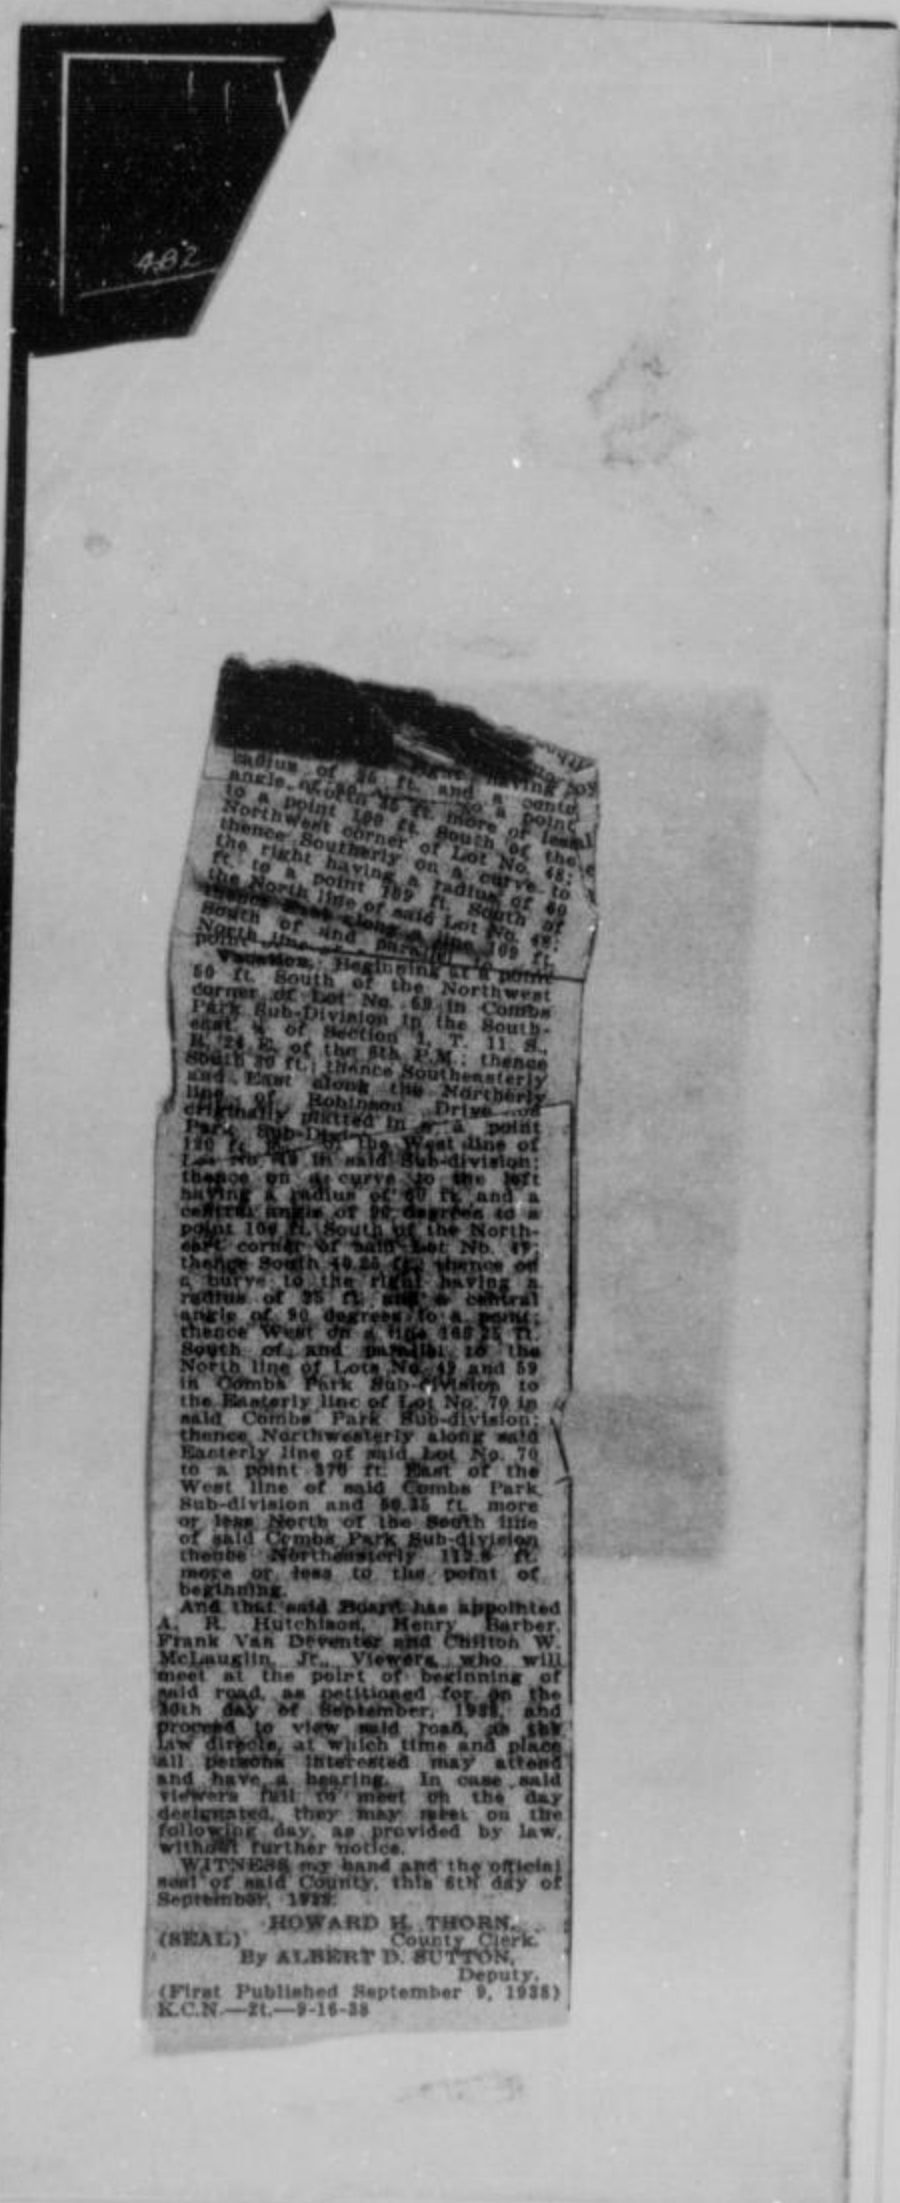 482
radius of 25 ft. and a
angle of
to a point 100 ft. South of the
Northwest corner of Lot No. 48;
thence Southerly on a curve to
the right having a radius of 60
ft. to a point 169 ft. South of
the North line of said Lot No. 48;
thence East along a line 169 ft.
South of and parallel
North line
point
Vacation: Beginning at a point
50 ft. South of the Northwest
corner of Lot No. 69 in Combs
Park Sub-Division in the South-
east ¼ of Section 1, T. 11 S.,
R. 24 E. of the 6th P.M.; thence
South 20 ft.; thence Southeasterly
and East along the Northerly
line of Robinson Drive as
originally platted in a point
Park Sub-Division
120 ft. the West line of
Lot No. 49 in said Sub-division;
thence on a curve to the left
having a radius of 60 ft. and a
central angle of 90 degrees to a
point 100 ft. South of the North-
east corner of said Lot No. 49;
thence South ft.; thence on
a curve to the right having a
radius of 25 ft. and a central
angle of 90 degrees to a point;
thence West on a line ft.
South of and parallel to the
North line of Lots No. 49 and 59
in Combs Park Sub-division to
the Easterly line of Lot No. 70 in
said Combs Park Sub-division;
thence Northwesterly along said
Easterly line of said Lot No. 70
to a point 370 ft. East of the
West line of said Combs Park
Sub-division and ft. more
or less North of the South line
of said Combs Park Sub-division
thence Northeasterly ft.
more or less to the point of
beginning.
And that said Board has appointed
A. R. Hutchison, Henry Barber,
Frank Van Deventer and Chilton W.
McLauglin, Jr., Viewers, who will
meet at the point of beginning of
said road, as petitioned for on the
30th day of September, 1938, and
proceed to view said road, as the
law directs, at which time and place
all persons interested may attend
and have a hearing. In case said
viewers fail to meet on the day
designated, they may meet on the
following day, as provided by law,
without further notice.
WITNESS my hand and the official
seal of said County, this 6th day of
September, 1938.
HOWARD H. THORN,
(SEAL) County Clerk.
By ALBERT D. SUTTON,
Deputy.
(First Published September 9, 1938)
K.C.N.—2t.—9-16-38